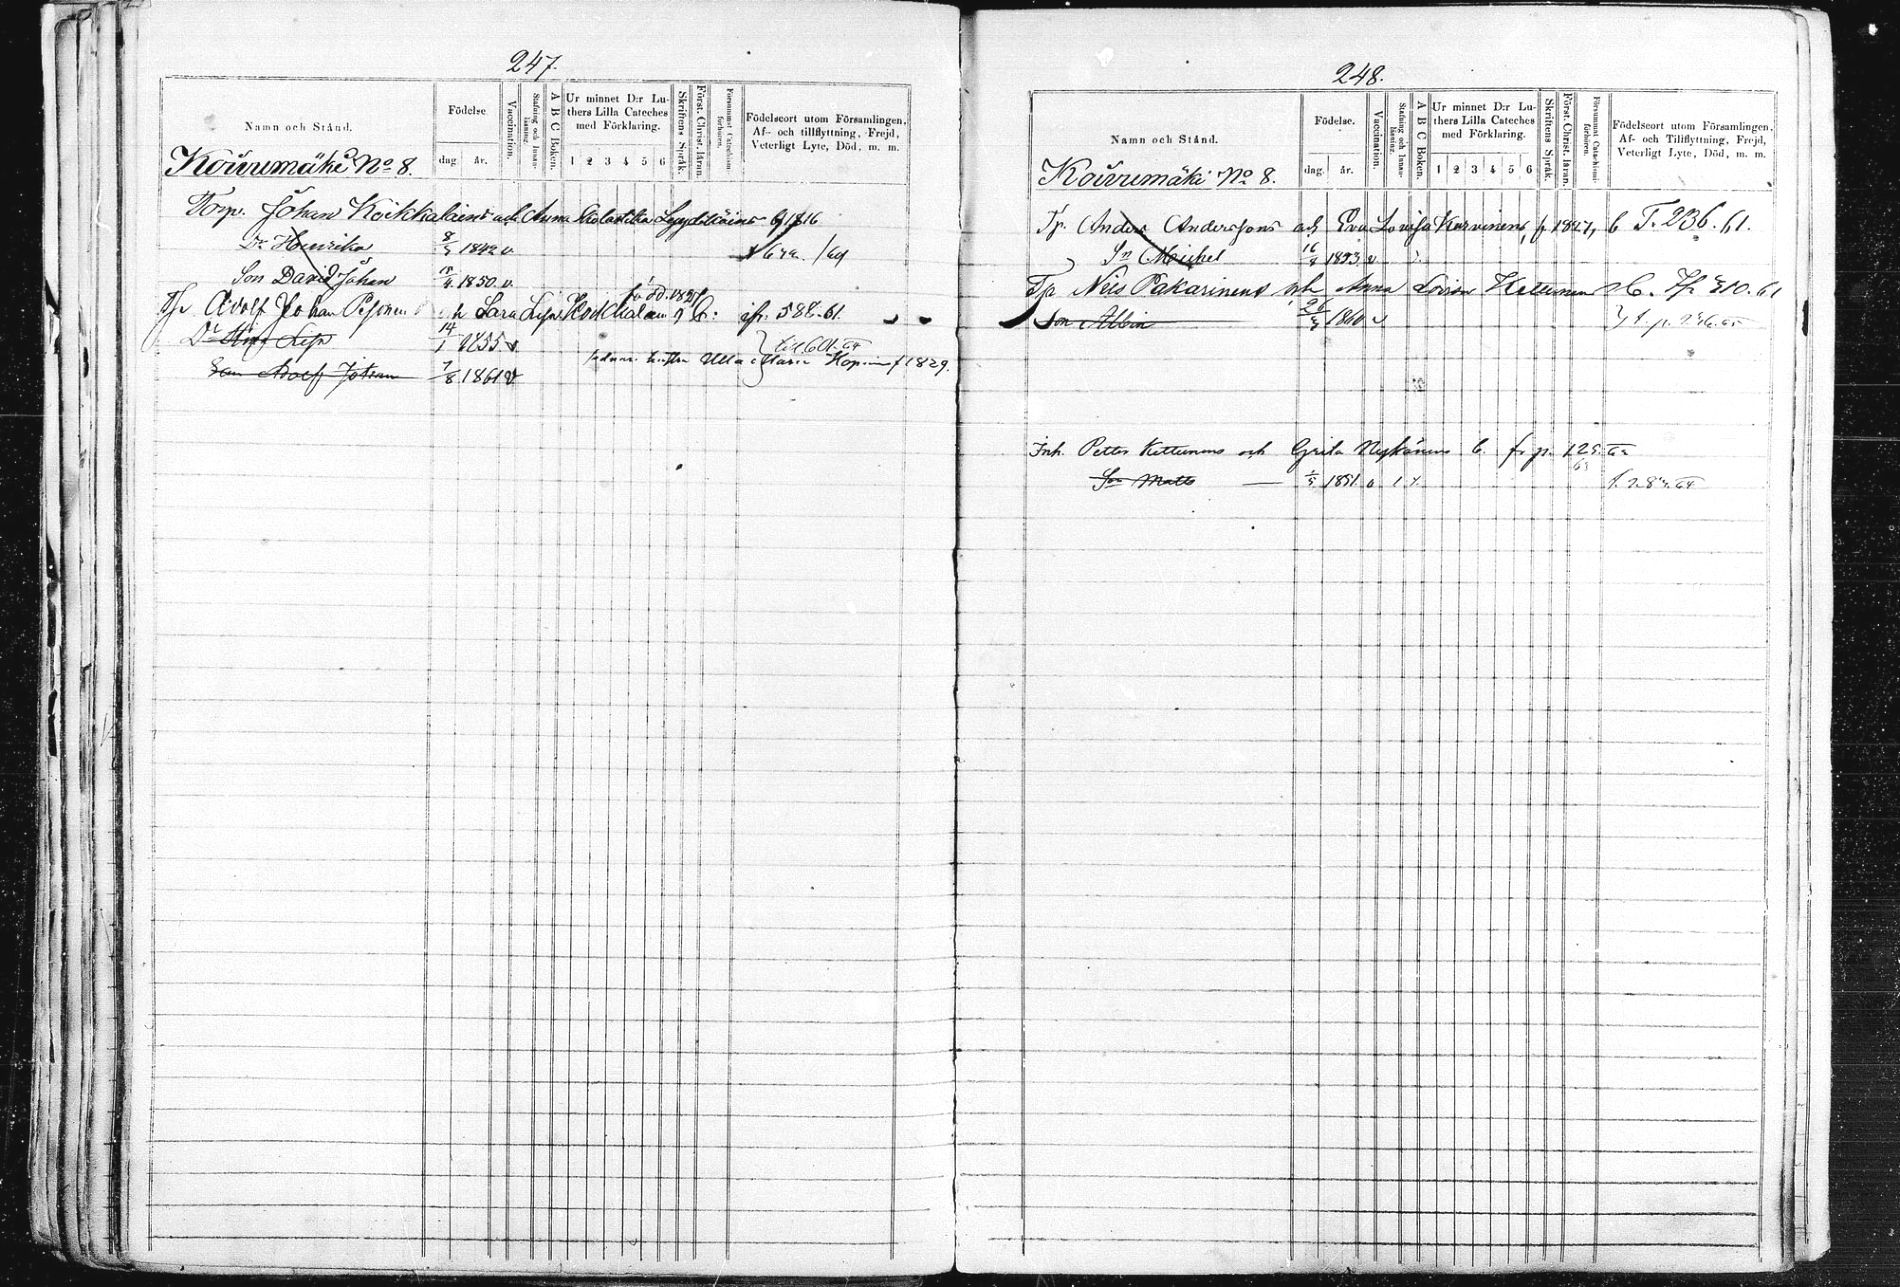 247.
Namn och Stånd.
Födelse
dag.
år.
Vaccination.
Stafning och Innan-
läsning.
A B C Boken.
Ur minnet D:r Lu-
thers Lilla Cateches
med Förklaring.
1 2 3 4 5 6
Skriftens Språk.
Först. Christ. läran.
Försummat Catechismi-
förhören.
Födelseort utom Församlingen,
Af- och tillflyttning, Frejd,
Veterligt Lyte, Död, m. m.
Koivumäki No 8.
Torp. Johan Koikkalain och Anna 1816
Dr Henrika 8/5 1842 v.
Son David Johan 1850. v.
född. 1827
Adolf Johan Pesonen och Sara Lisa 588.61.
Dr Lisa 14/1 1855 v. till 601.64
Ulla Maria 1829.
Son Adolf Johan 7/8 1861 v
248.
Namn och Stånd.
Födelse.
dag.
år.
Vaccination.
Stafning och Innan-
läsning.
A B C Boken.
Ur minnet D:r Lu-
thers Lilla Cateches
med Förklaring.
1 2 3 4 5 6
Skriftens Språk.
Först. Christ. läran.
Försummat Catechismi-
förhören.
Födelseort utom Församlingen,
Af- och Tillflyttning, Frejd,
Veterligt Lyte, Död, m. m.
Koivumäki No 8.
Tp. Anders Anderssons och Eva Lovisa Karvinens, f. 1827, b T. 236. 61.
Sn Michel 16/8 1853 v
Tp Nils Pakarinens och Anna Lovisa Kettunen 310. 61
Son Albin 26/3 1860 v
Inh. Petter Kettunens och Greta Nykänens b. fr. p. 125.
Son Matts 1/5 1851. v